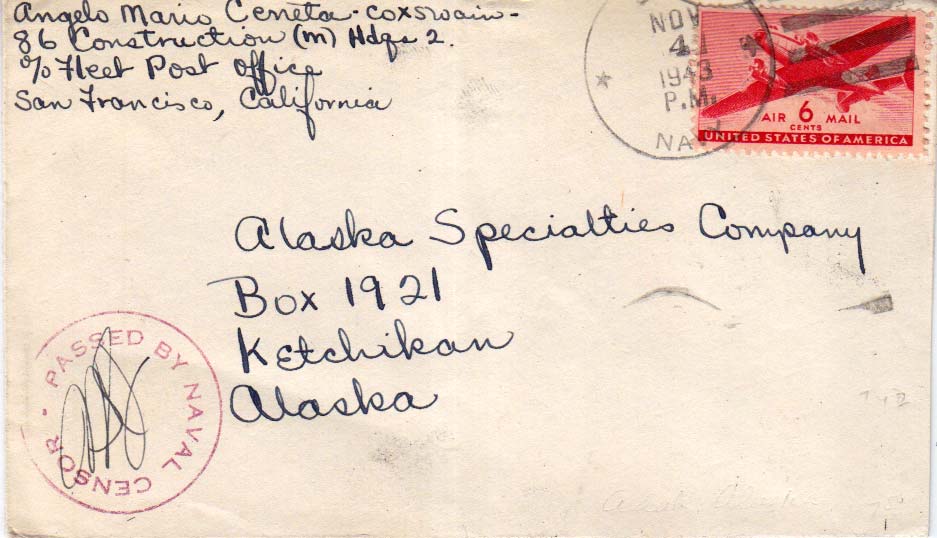 Angelo Mario Ceneta - coxswain -
86 Construction (M) Hdqs 2.
c/o Fleet Post Office
San Francisco, California
NOV
4
1943
P.M.
NAVY
AIR 6 MAIL
CENTS
UNITED STATES OF AMERICA
Alaska Specialties Company
Box 1921
Ketchikan
Alaska
PASSED BY NAVAL CENSOR